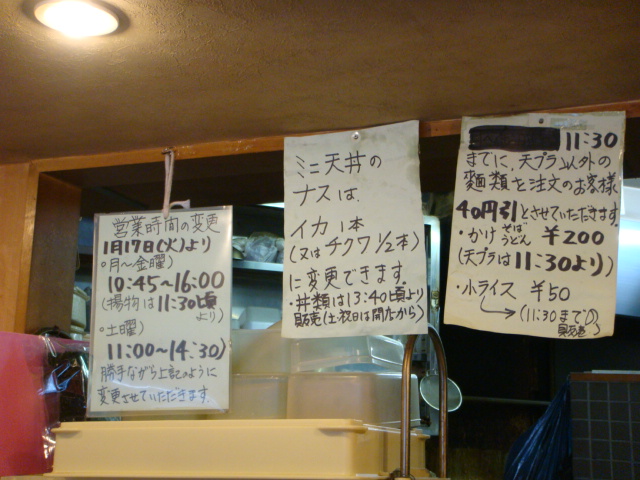 営業時間の変更
1月17日(火)より
○月〜金曜)
10:45〜16:00
(揚物は11:30頃
より)
○土曜)
11:00〜14:30)
勝手ながら上記のように
変更させていただきます
ミニ天丼の
ナスは、
イカ1本
(又はチクワ1/2本)
に変更できます.
・丼類は13:40頃より
販売(土・祝日は開店から)
11:30
までに、天プラ以外の
麺類を注文のお客様
40円引とさせていただきます.
・かけそばうどん ¥200
(天プラは11:30より)
・小ライス ¥50
(11:30までの
販売)